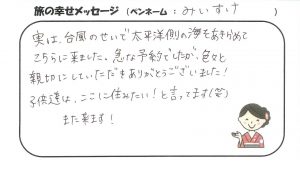 旅の幸せメッセージ (ペンネーム：みぃすけ)
実は、台風のせいで太平洋側の海をあきらめて
こちらに来ました。急な予約でしたが、色々と
親切にしていただきありがとうございました！
子供達は、ここに住みたい！と言ってます(笑)
また来ます！